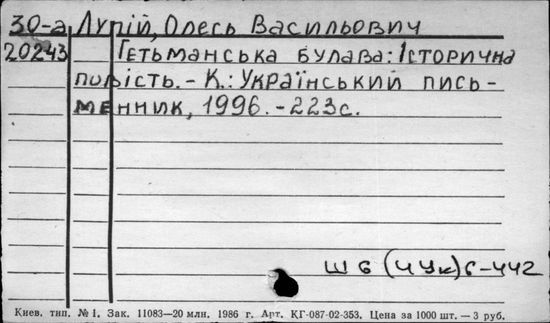 30-а Лупій, Олесь Васильович
20243 Гетьманська булава: Історична
повість. - К.: Український пись-
менник, 1996. - 223с.
Ш6(4Ук)6-442
Киев. тип. № 1. Зак. 11083—20 млн. 1986 г. Арт. КГ-087-02-353. Цена за 1000 шт. — 3 руб.